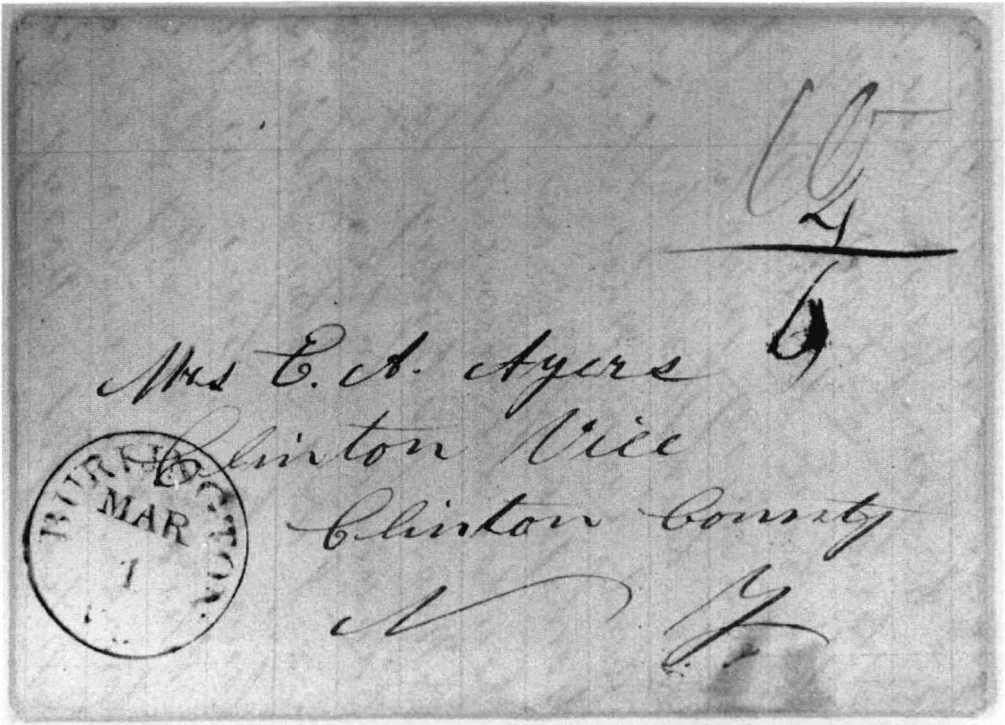 10
4
6
Mrs E. A. Ayers
Clinton Vill
Clinton County
N Y
BURLINGTON
MAR
1